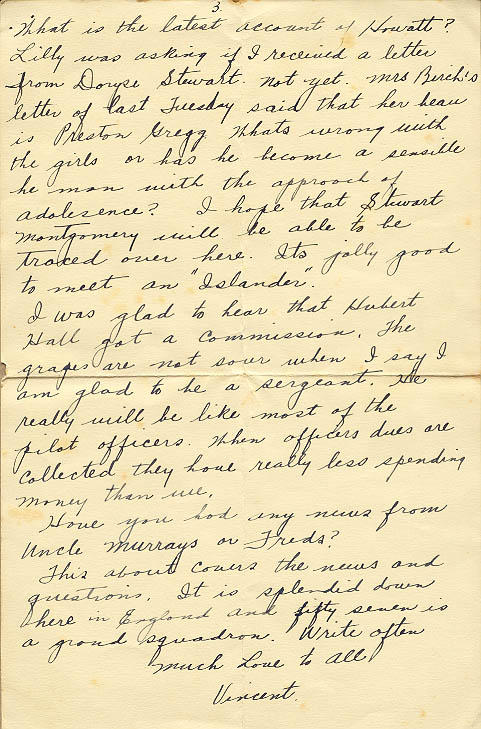 3.
"What is the latest account of Howatt?
Lilly was asking if I received a letter
from Doryse Stewart. Not yet. Mrs Birch's
letter of last Tuesday said that her beau
is Preston Gregg Whats wrong with
the girls or has he become a sensible
he man with the approach of
adolesence? I hope that Stewart
Montgomery will be able to be
traced over here. Its jolly good
to meet an "Islander".
I was glad to hear that Hubert
Hall got a commission. The
grapes are not sour when I say I
am glad to be a sergeant. He
really will be like most of the
pilot officers. When officers dues are
collected they have really less spending
money than we.
Have you had any news from
Uncle Murrays or Freds?
This about covers the news and
questions. It is splendid down
here in England and fifty seven is
a grand squadron. Write often
Much Love to All
Vincent.